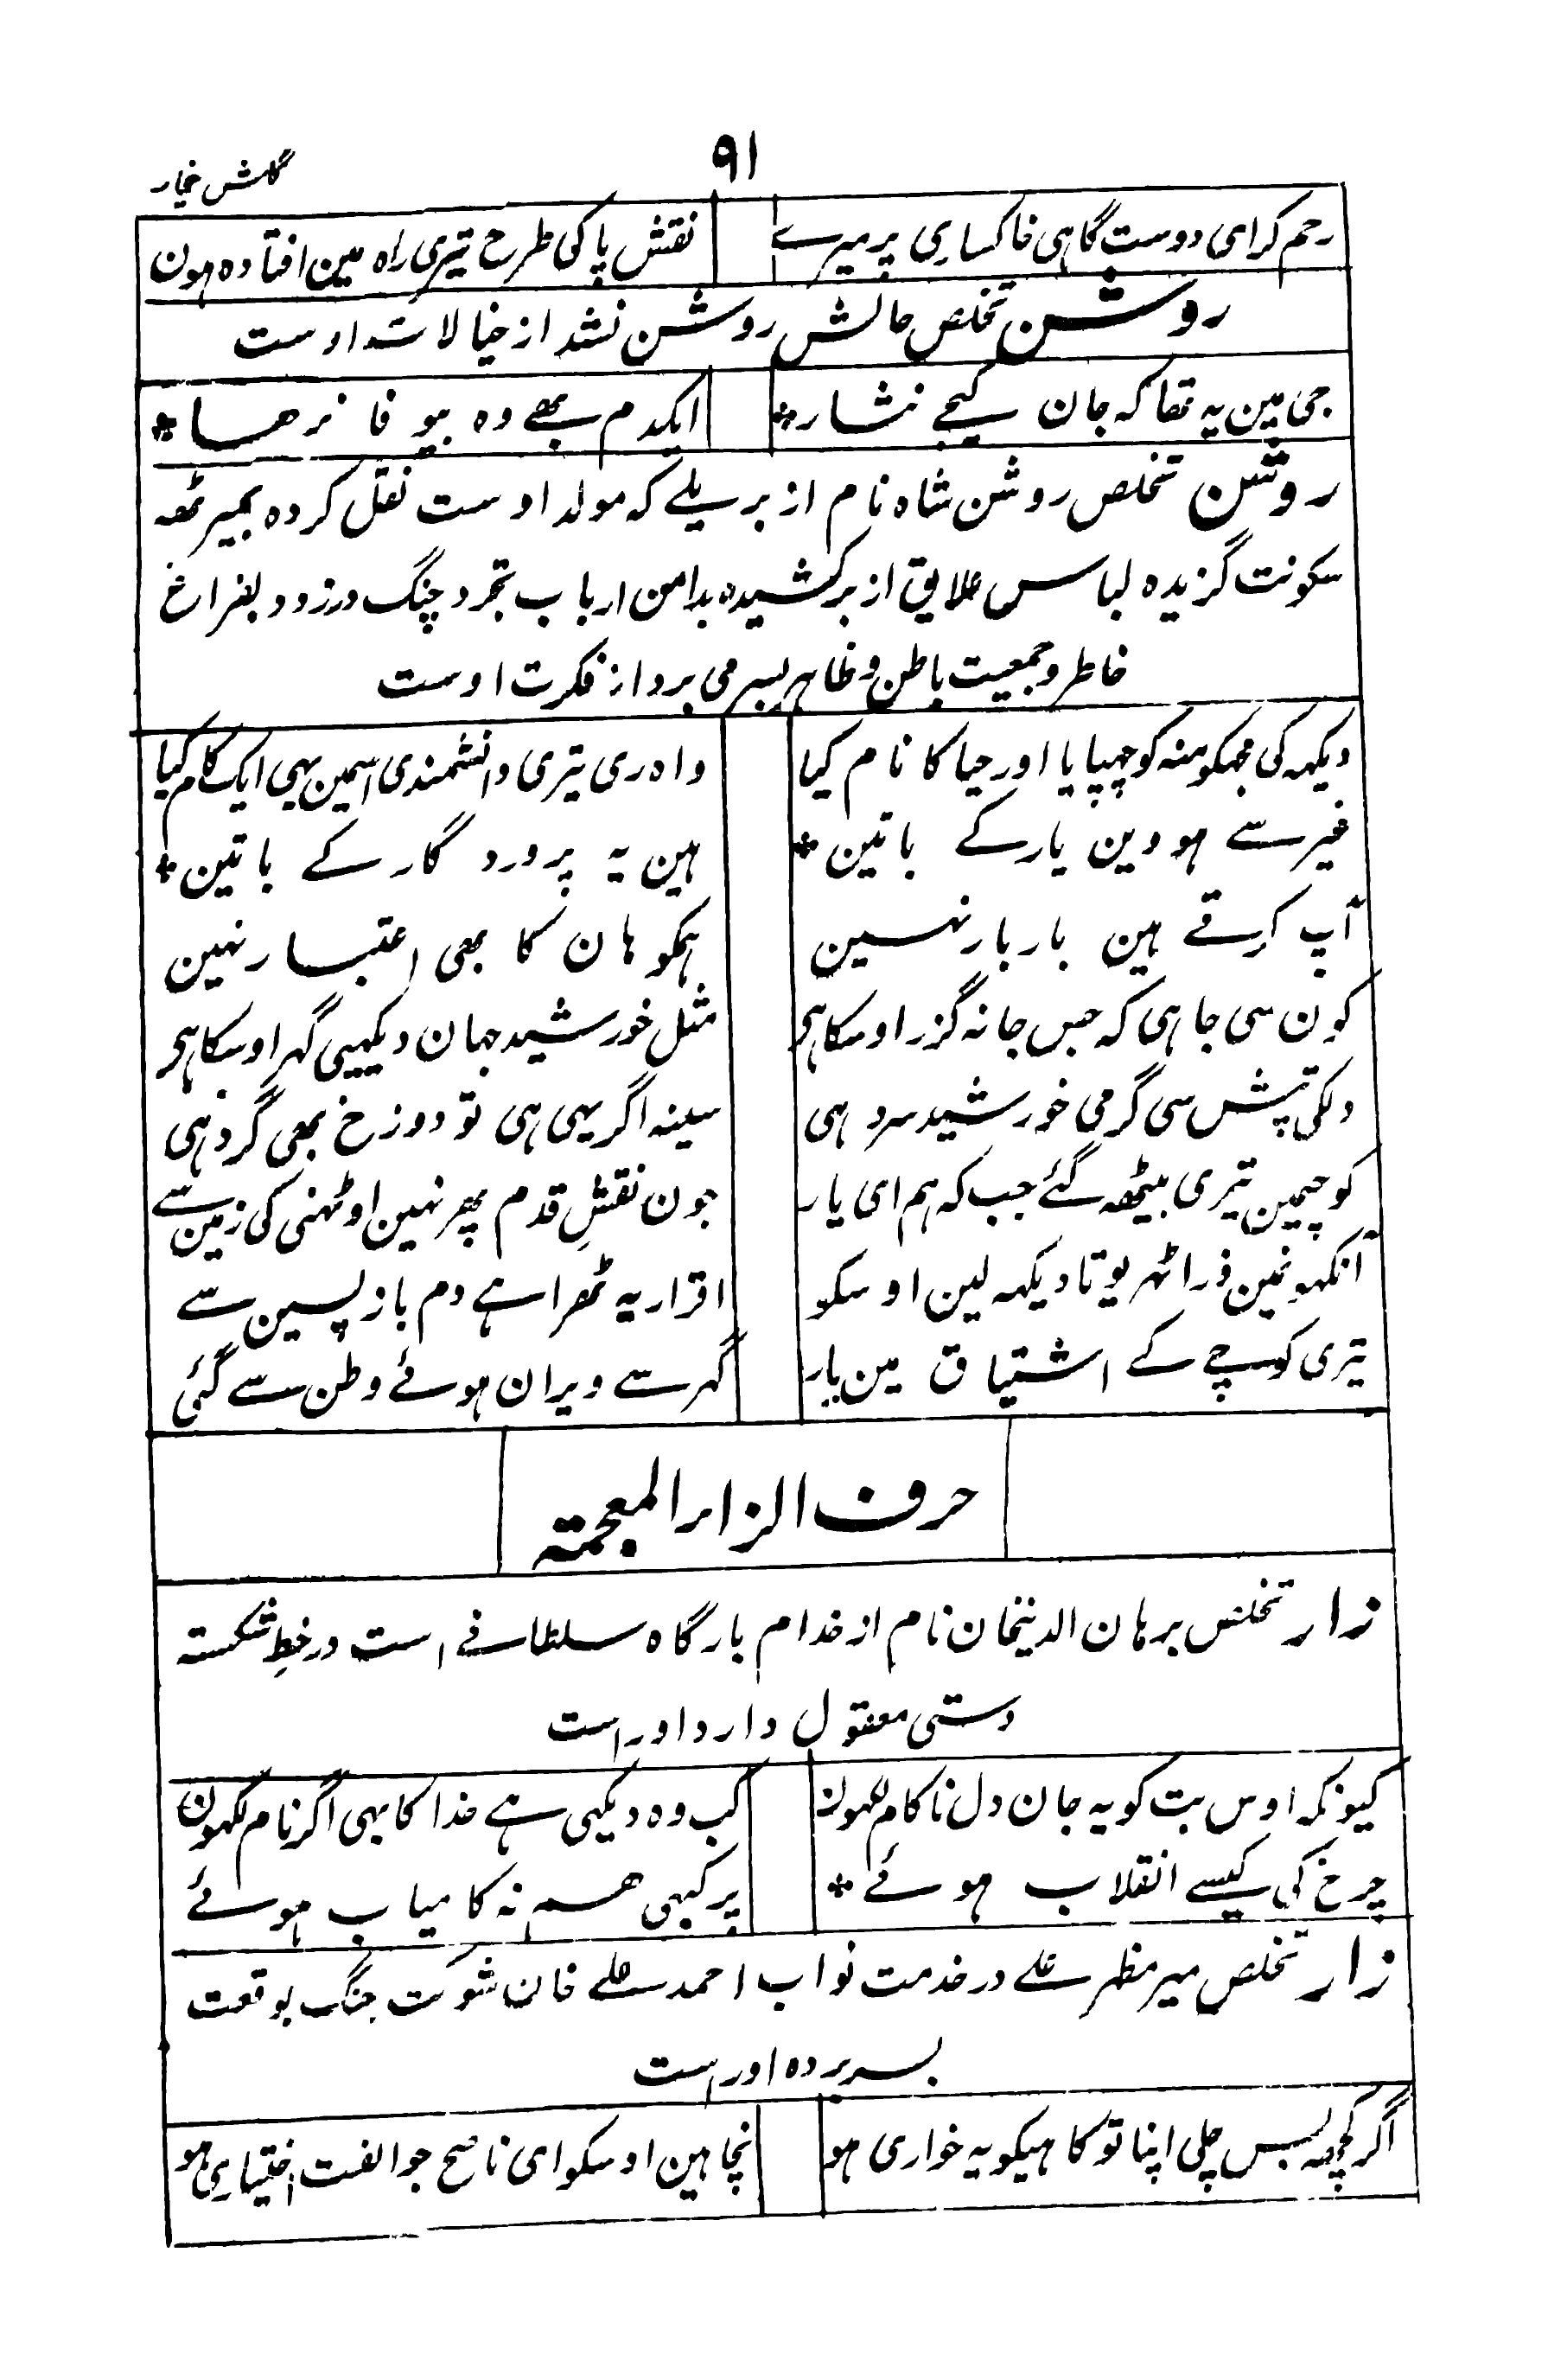 ۹۱
گلشن بیخار
رحم کر ای دوست گاہی خاکساری پر میرے نقش پا کی طرح تیری راہ مین افتادہ ہون
روشن تخلص حالش روشن نشد از خیالات اوست
جی مین یہ تھا کہ جان کیجے نثار * ایکدم بھے وہ بیوفا نرھا *
روشن تخلص روشن شاہ نام از بریلے کہ مولد اوست نقل کردہ بمیرٹھہ
سکونت گزیدہ لباس علایق از بر کشیدہ بدامن ارباب تجرد چنگ در زدہ بفراغ
خاطر و جمعیت باطن و ظاہر بسر می برد از فکرت اوست
دیکہہ کی مجکو منہ کو چہپایا اور حیا کا نام کیا واہ ری تیری دانشمندی اسمین بہی ایک کام کیا
غیر سے ہووین یار کے باتین * ہین یہ پروردگار کے باتین *
آپ کرتے ہین بار بار نہین ہمکو ہان کا بھی اعتبار نہین
کون سی جا ہی کہ جس جا نہ گزر اوسکا ہی مثل خورشید جہان دیکہیی گہر اوسکا ہی
دلکی تپش سی گرمی خورشید سرد ہی سینہ اگر یہی ہی تو دوزخ بھی گرد ہی
کوچیمین تیری بیٹھہ گئے جب کہ ہم ای یار جون نقشِ قدم پھر نہین اوٹہنی کی زمین سے
آنکہونمین ذرا ٹہریو تا دیکہہ لین اوسکو اقرار یہ ٹھرا ہے دم باز پسین سے
تیری کوچے کے اشتیاق مین یار گہر سے ویران ہوئے وطن سے گئی
حرف الزاء المعجمتہ
زار تخلص برہان الدینخان نام از خدام بارگاہ سلطانے است در خطِ شکستہ
دستی معقول دارد اوراست
کیونکہ اوس بت کو یہ جان دل ناکام لکہون کب وہ دیکہی ہے خدا کا بہی اگر نام لکہون
چرخ کی کیسے انقلاب ہوئے * پر کبہی ھم نہ کامیاب ہوئے
زار تخلص میر مظہر علے در خدمت نواب احمد علے خان شوکت جنگ بوقعت
بسر بردہ اوراست
اگر کچھہ بس چلی اپنا تو کاہیکو یہ خواری ہو نچاہین اوسکو ای ناصح جو الفت اختیاری ہو